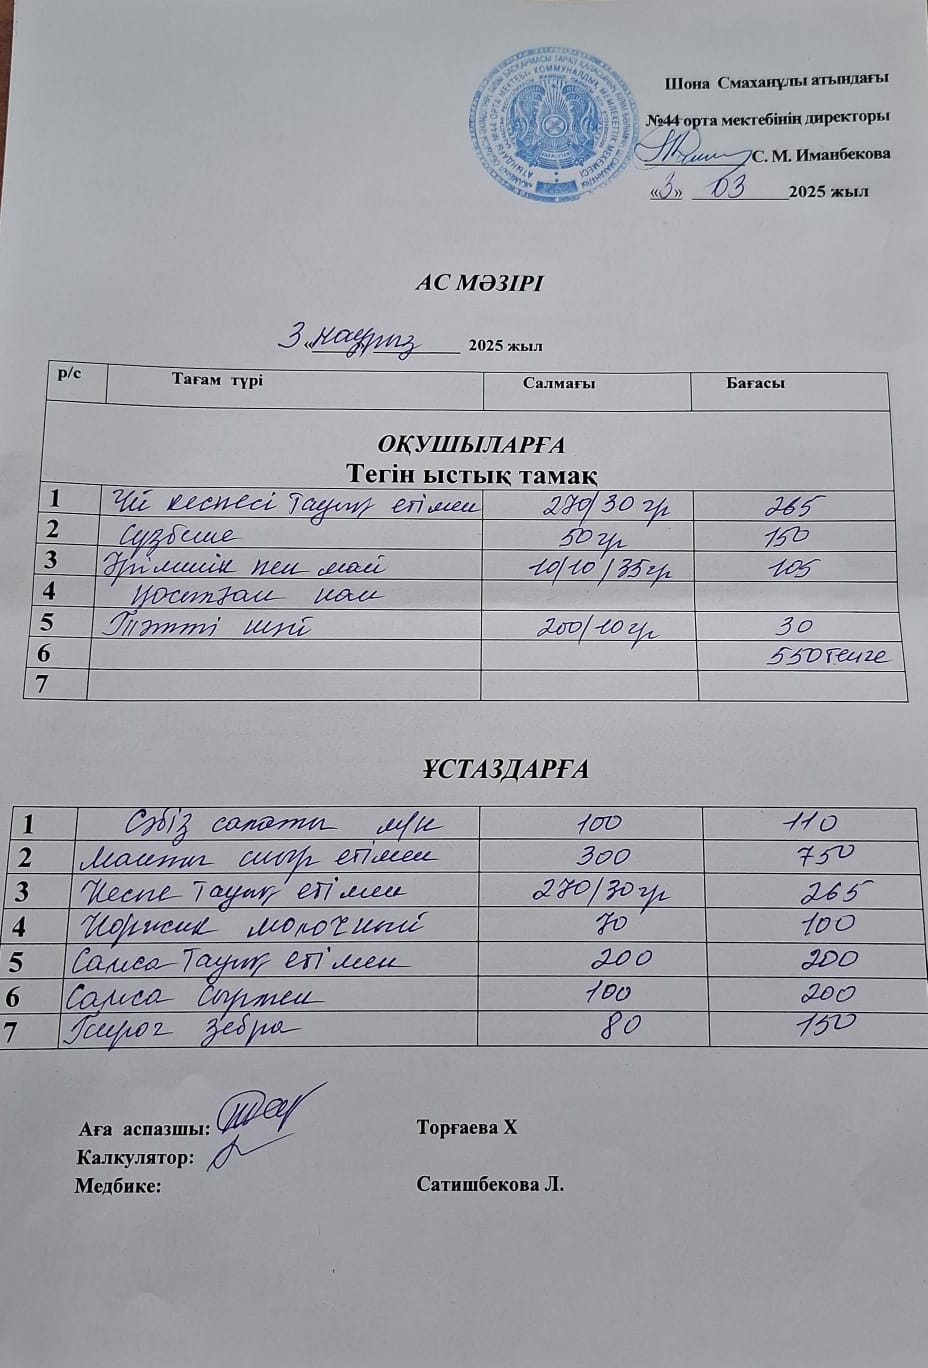 Шона Смаханұлы атындағы
№44 орта мектебінің директоры
С. М. Иманбекова
«3» 03 2025 жыл
АС МӘЗІРІ
3 «наурыз 2025 жыл
р/с Тағам түрі Салмағы Бағасы
ОҚУШЫЛАРҒА
Тегін ыстық тамақ
1 Үй кеспесі Тауық етімен 270/30 гр 265
2 Сүзбеше 50 гр 150
3 Ірімшік пен май 10/10/35гр 105
4 қосылған нан
5 Тәтті шәй 200/10гр 30
6 550теңге
7
ҰСТАЗДАРҒА
1 Сәбіз салаты м/н 100 110
2 Манты сиыр етімен 300 750
3 Кеспе Тауық етімен 270/30 гр 265
4 Коржик молочный 70 100
5 Самса Тауық етімен 200 200
6 Самса Сырмен 100 200
7 Пирог зебра 80 150
Аға аспазшы: Торғаева Х
Калкулятор:
Медбике: Сатишбекова Л.